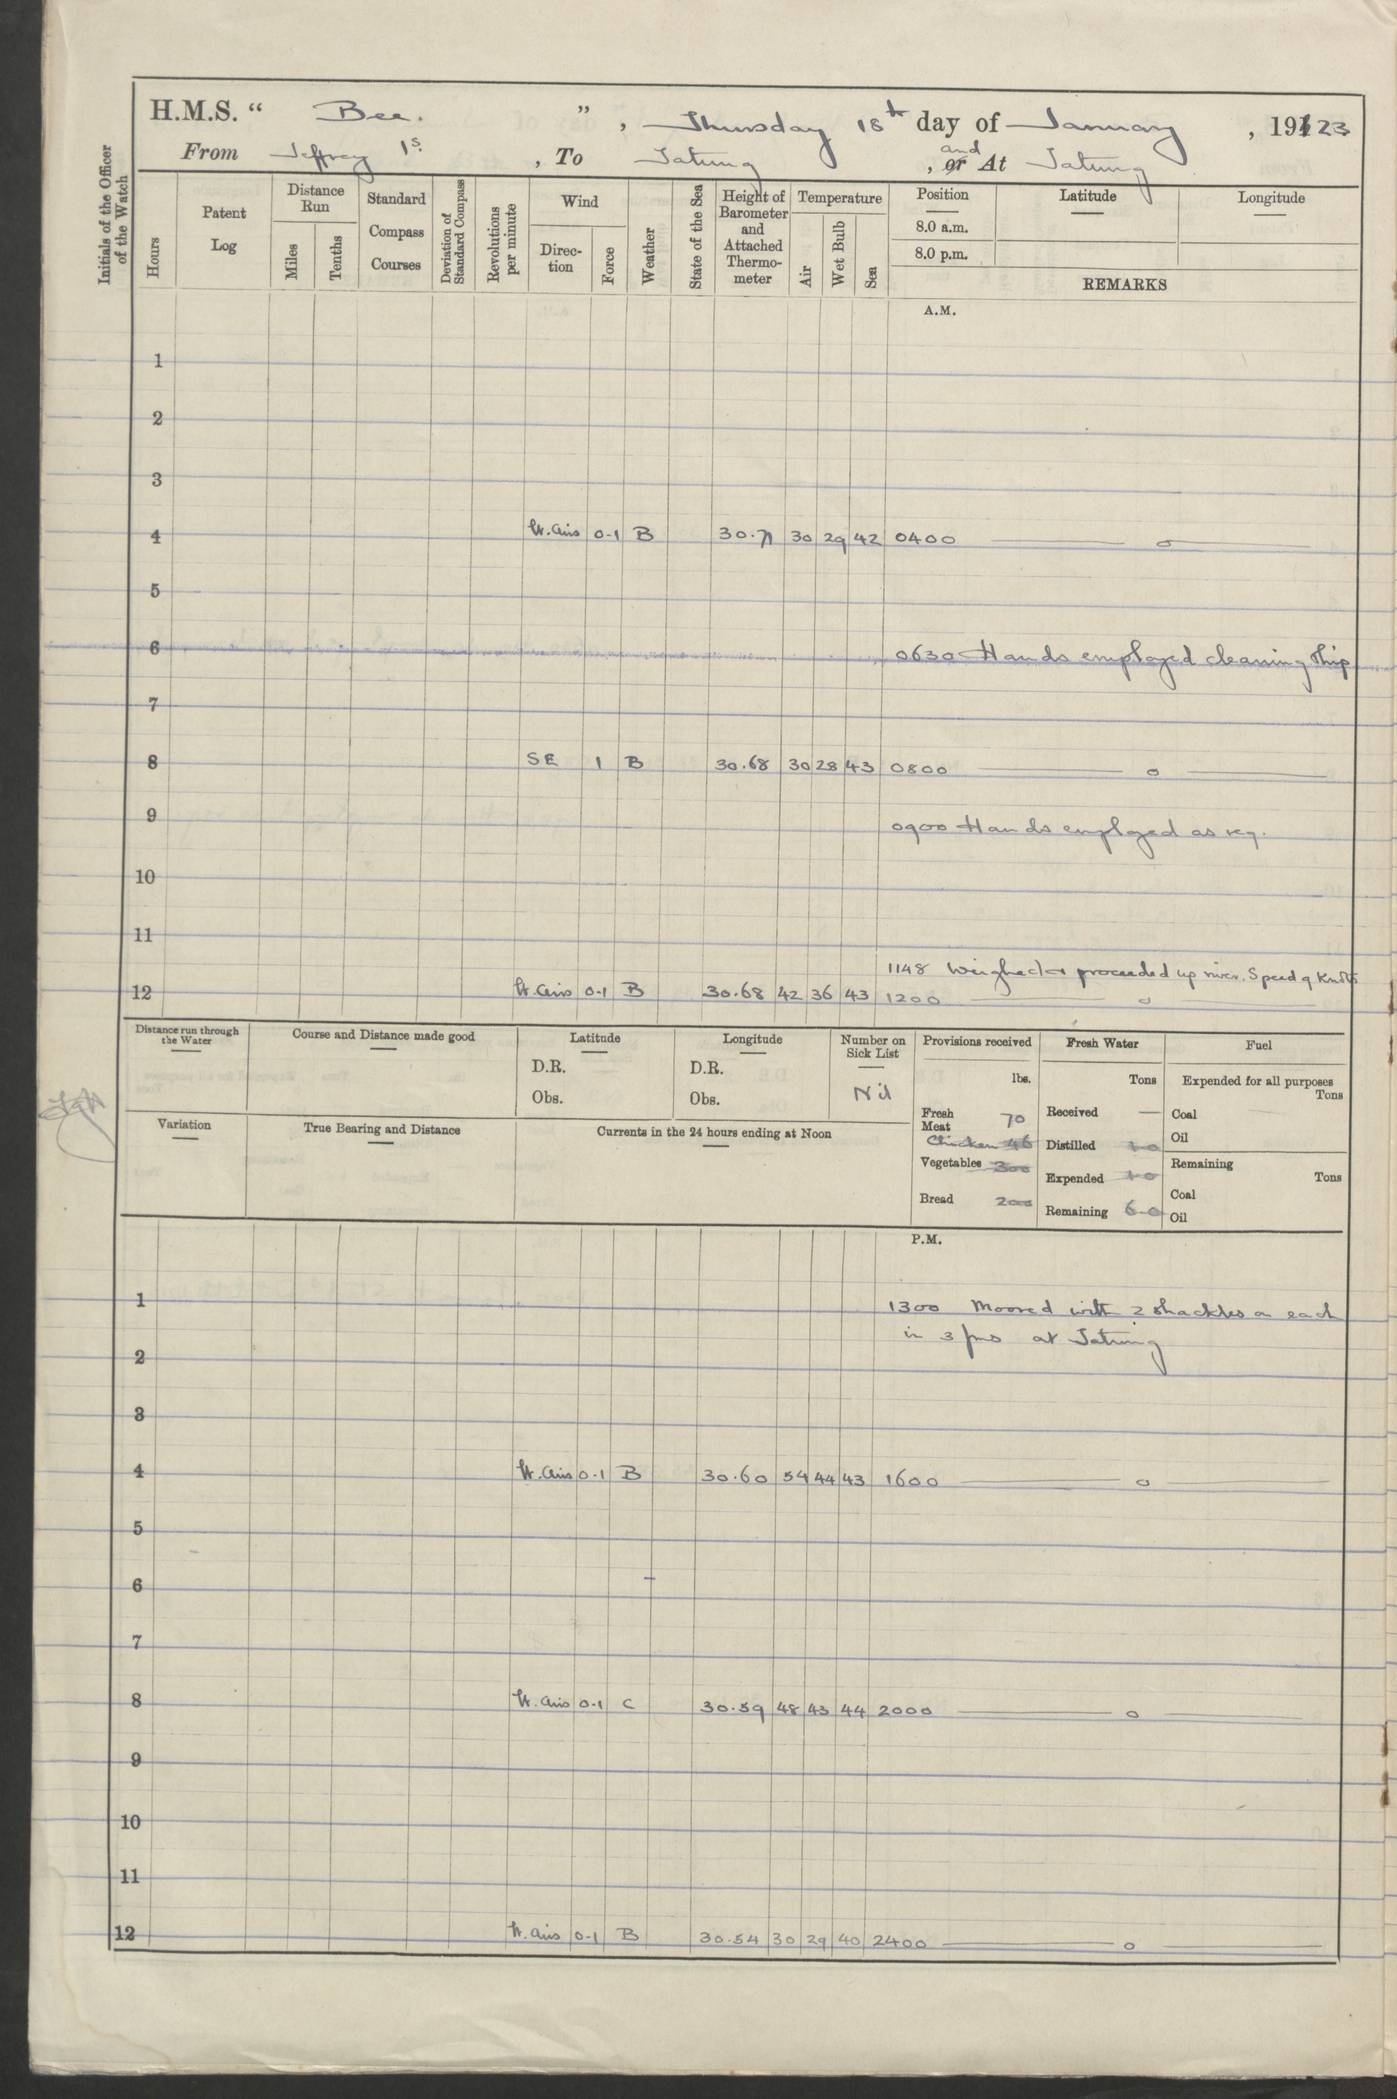 H.M.S. " Bee. ", Thursday 18th day of January, 191 23
From Jeffrey Is., To Tatung, or and At Tatung
Initials of the Officer of the Watch
Hours
Patent Log
Distance Run
Miles
Tenths
Standard Compass Courses
Deviation of Standard Compass
Revolutions per minute
Wind
Direction
Force
Weather
State of the Sea
Height of Barometer and Attached Thermometer
Temperature
Air
Wet Bulb
Sea
Position
8.0 a.m.
8.0 p.m.
Latitude
Longitude
REMARKS
A.M.
1
2
3
4 lt. airs 0-1 B 30.71 30 29 42 0400 —— o ——
5
6
0630 Hands employed cleaning ship
7
8 SE 1 B 30.68 30 28 43 0800 —— o ——
9
0900 Hands employed as req.
10
11
1148 Weighed & proceeded up river. Speed 9 Knots
12 lt. airs 0-1 B 30.68 42 36 43 1200 —— o ——
Distance run through the Water
Course and Distance made good
Latitude
D.R.
Obs.
Longitude
D.R.
Obs.
Number on Sick List
Nil
Provisions received
lbs.
Fresh Meat 70
Chicken 46
Vegetables 300
Bread 200
Fresh Water
Tons
Received —
Distilled 1.0
Expended 1.0
Remaining 6.0
Fuel
Expended for all purposes
Tons
Coal
Oil
Remaining
Tons
Coal
Oil
Variation
True Bearing and Distance
Currents in the 24 hours ending at Noon
P.M.
1 1300 Moored with 2 shackles on each
in 3 fms at Tatung
2
3
4 lt. airs 0-1 B 30.60 54 44 43 1600 —— o ——
5
6
7
8 lt. airs 0-1 C 30.59 48 43 44 2000 —— o ——
9
10
11
12 lt. airs 0-1 B 30.54 30 29 40 2400 —— o ——